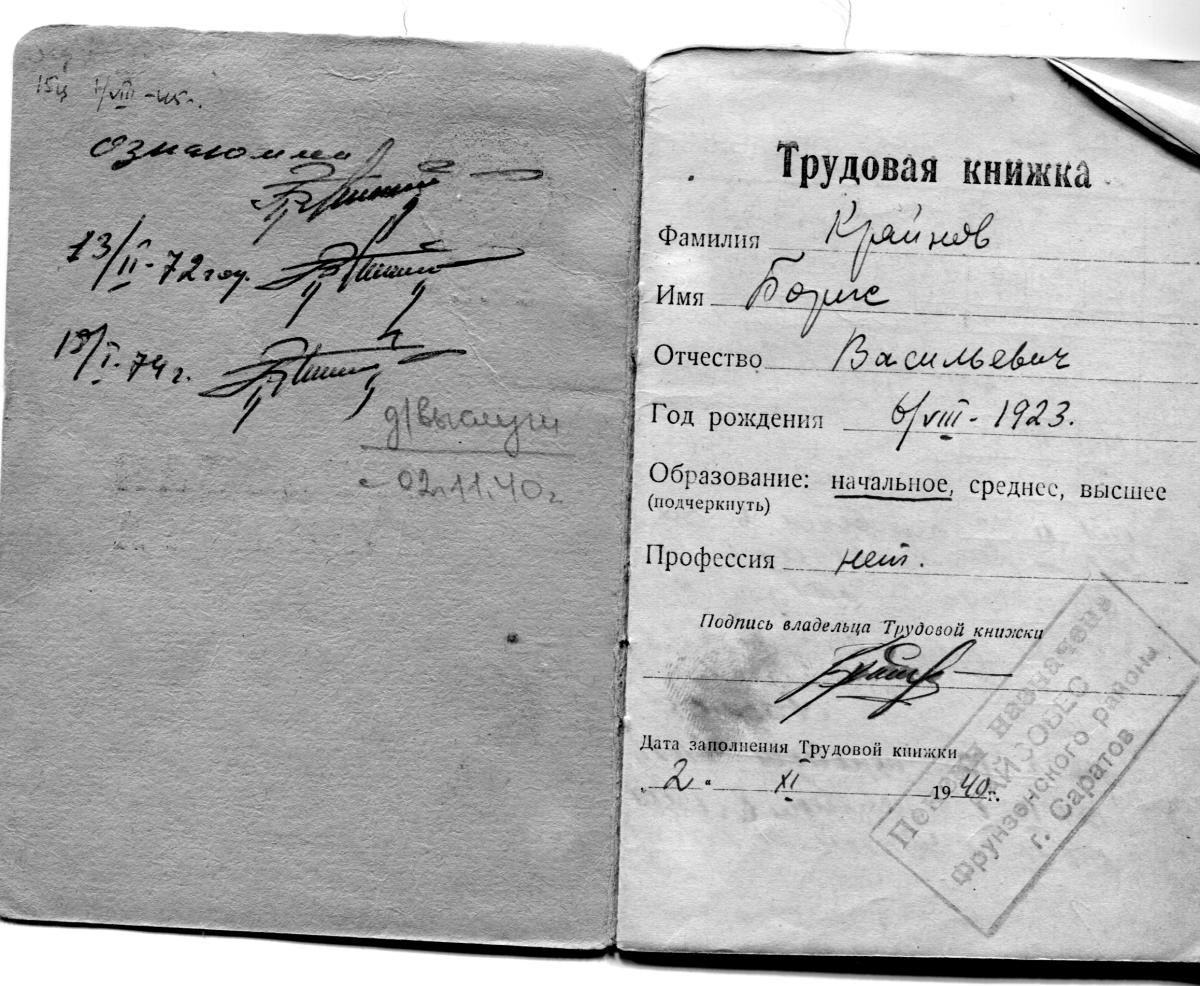 15ц 1/VIII-45г.
ознакомлен
13/II-72 году.
18/I-74 г.
д/выслуги
с 02.11.40г
Трудовая книжка
Фамилия Крайнов
Имя Борис
Отчество Васильевич
Год рождения 6/VIII-1923.
Образование: начальное, среднее, высшее
(подчеркнуть)
Профессия нет.
Подпись владельца Трудовой книжки
Дата заполнения Трудовой книжки
„2“ XI 1940г.
Пенсия назначена
РАЙСОБЕС
Фрунзенского района
г. Саратов